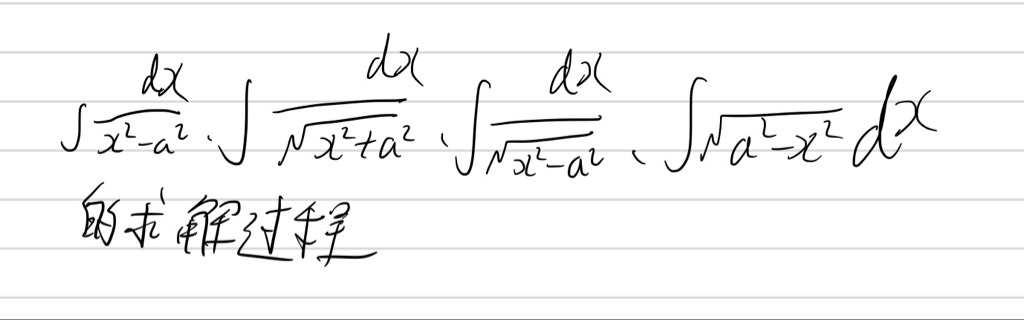 ∫ dx/(x²-a²)、∫ dx/√(x²+a²)、∫ dx/√(x²-a²)、∫√(a²-x²) dx
的求解过程